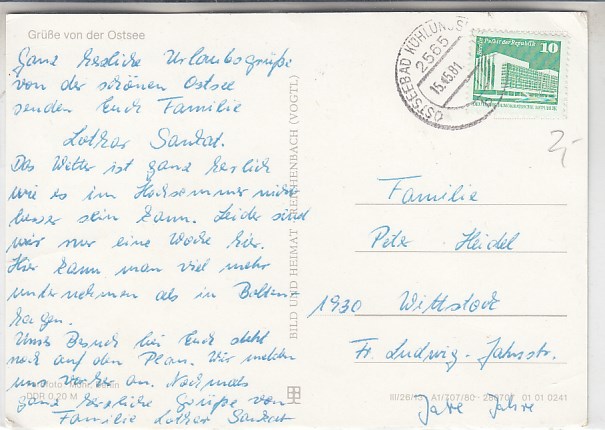 Grüße von der Ostsee
Ganz herzliche Urlaubsgrüße
von der schönen Ostsee
senden Euch Familie
Lothar
Das Wetter ist ganz herrlich
wie es im Hochsommer nicht
besser sein kann. Leider sind
wir nur eine Woche hier.
Hier kann man viel mehr
unternehmen als in Bolten-
hagen.
Unser Besuch bei Euch steht
noch auf dem Plan. Wir melden
uns vorher an. Nochmals
ganz herzliche Grüße von
Familie Lothar
DDR 0,20 M
BILD UND HEIMAT REICHENBACH (VOGTL)
OSTSEEBAD KÜHLUNGSB
2565
15.-5.81
Palast der Republik
10
2,-
Familie
Peter Heidel
1930 Wittstock
Fr. Ludwig-Jahnstr.
III/26/13 A1/707/80 01 01 0241